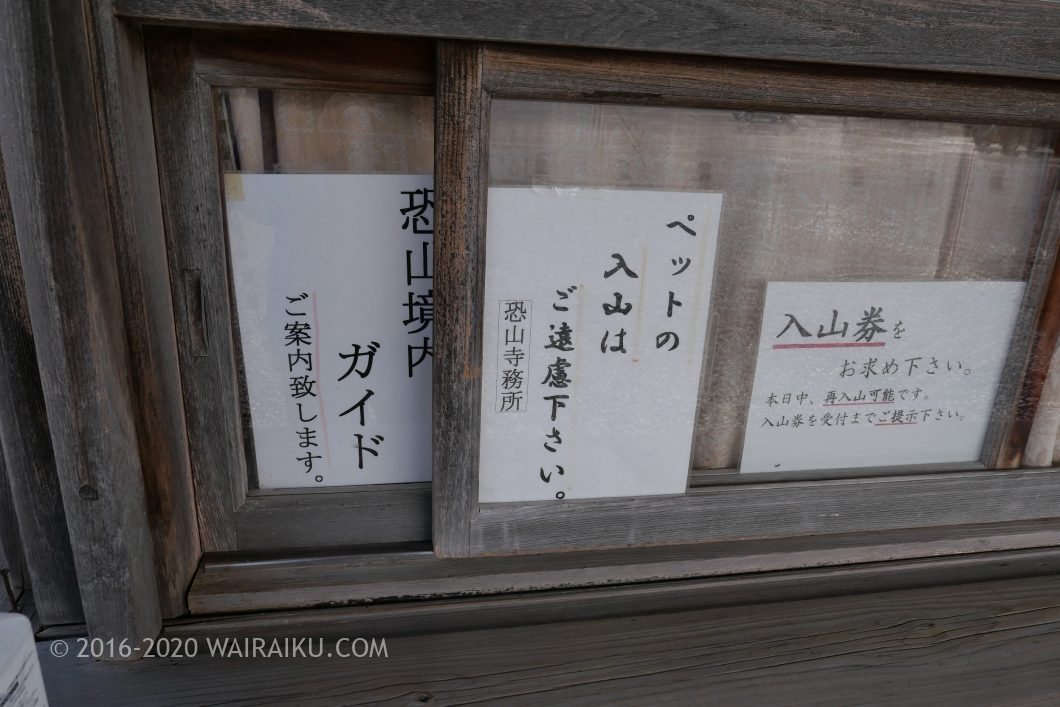 恐山境内
ガイド
ご案内致します。
ペットの
入山は
ご遠慮下さい。
恐山寺務所
入山券を
お求め下さい。
本日中、再入山可能です。
入山券を受付までご提示下さい。
© 2016-2020 WAIRAIKU.COM